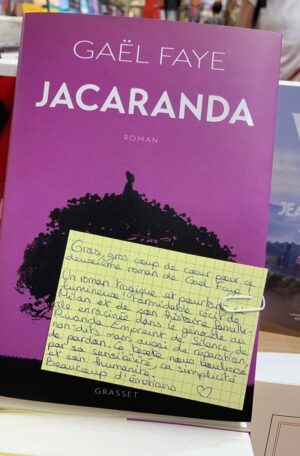 GAËL FAYE
JACARANDA
ROMAN
Gros, gros coup de coeur pour ce
deuxième roman de Gaël Faye.
Un roman tragique et pourtant
lumineux! Formidable récit de
Milan et de son histoire famili-
ale enracinée dans le génocide au
Rwanda. Empreint de silence de
non-dits mais aussi de réparation
de pardon. Ce texte nous bouleverse
par sa sensibilité, sa simplicité
et son humanité.
Beaucoup d'émotions
GRASSET
JEA